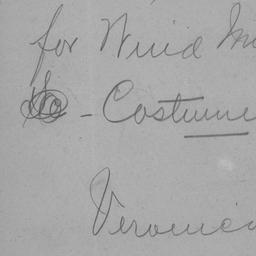 for Wind
- Costume
Veronica